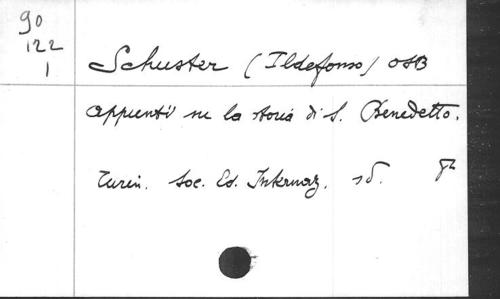 90
122
1
Schuster (Ildefonso) OSB
appunti su la storia di S. Benedetto.
Turin. Soc. Ed. Internaz. sd.